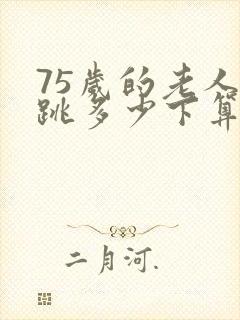 75岁的老人
跳多少下算
二月河.